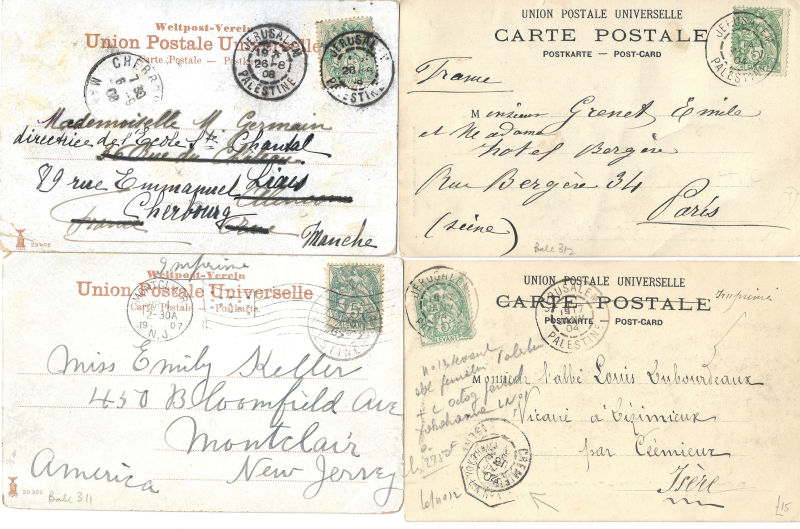 Weltpost-Verein
Union Postale Universelle
Carte Postale — Postkarte
JERUSALEM
26-8
08
PALESTINE
JERUSALEM
PALESTINE
CHERBOURG
7 30
6
08
Mademoiselle M. Germain
directrice de l'Ecole Chantal
Rue du Château
89 rue Emmanuel Liais
Alencon
Cherbourg
France
Orne
Manche
29405
UNION POSTALE UNIVERSELLE
CARTE POSTALE
POSTKARTE — POST-CARD
JERUSALEM
04
PALESTINE
5
France
Monsieur Grenet Emile
et Madame
hotel Bergère
Rue Bergère 34
Paris
(Seine)
Bale 312
Imprimé
Weltpost-Verein
Union Postale Universelle
Carte Postale — Postkarte
MONTCLAIR
2-30A
19 07
N.J.
5
Miss Emily Keller
450 Bloomfield Ave
Montclair
America New Jersey
Bale 311
UNION POSTALE UNIVERSELLE
CARTE POSTALE
POSTKARTE — POST-CARD
JERUSALEM
JANV
5
LEVANT
JERUSALEM
17
JANV
04
PALESTINE
Imprimé
Monsieur l'abbé Louis Dubourdeaux
Vicaire à Tizimieux
par Crémieux
Isère
CREMIEU
£15